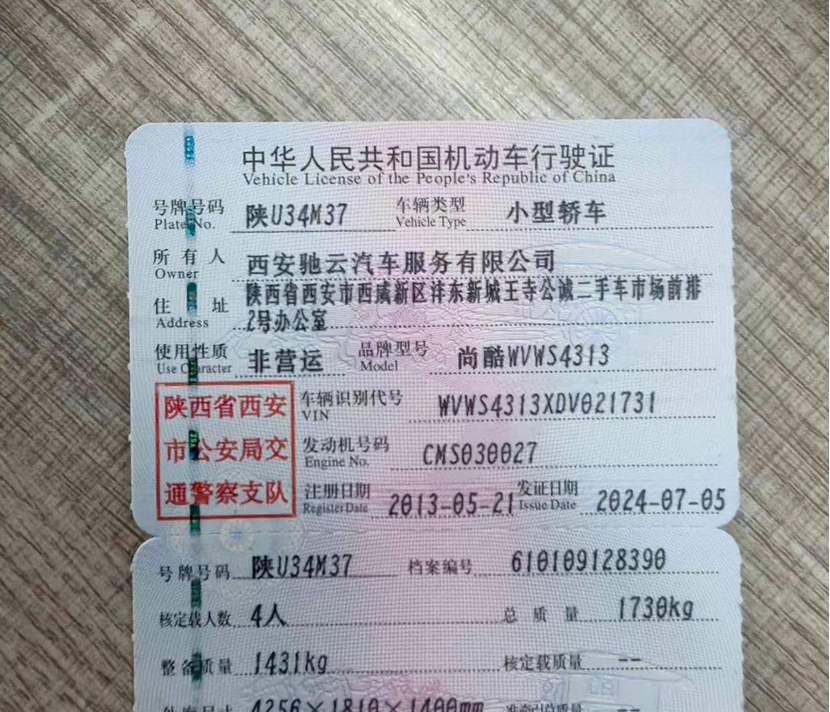 中华人民共和国机动车行驶证
Vehicle License of the People's Republic of China
号牌号码 陕U34M37 车辆类型 小型轿车
Plate No. Vehicle Type
所有人 西安驰云汽车服务有限公司
Owner
住址 陕西省西安市西咸新区沣东新城王寺公诚二手车市场前排
Address 2号办公室
使用性质 非营运 品牌型号 尚酷WVWS4313
Use Character Model
陕西省西安 车辆识别代号 WVWS4313XDV021731
VIN
市公安局交 发动机号码 CMS030027
Engine No.
通警察支队 注册日期 2013-05-21 发证日期 2024-07-05
Register Date Issue Date
号牌号码 陕U34M37 档案编号 610109128390
核定载人数 4人 总质量 1730kg
整备质量 1431kg 核定载质量 --
外廓尺寸 4256×1810×1400mm 准牵引总质量 --